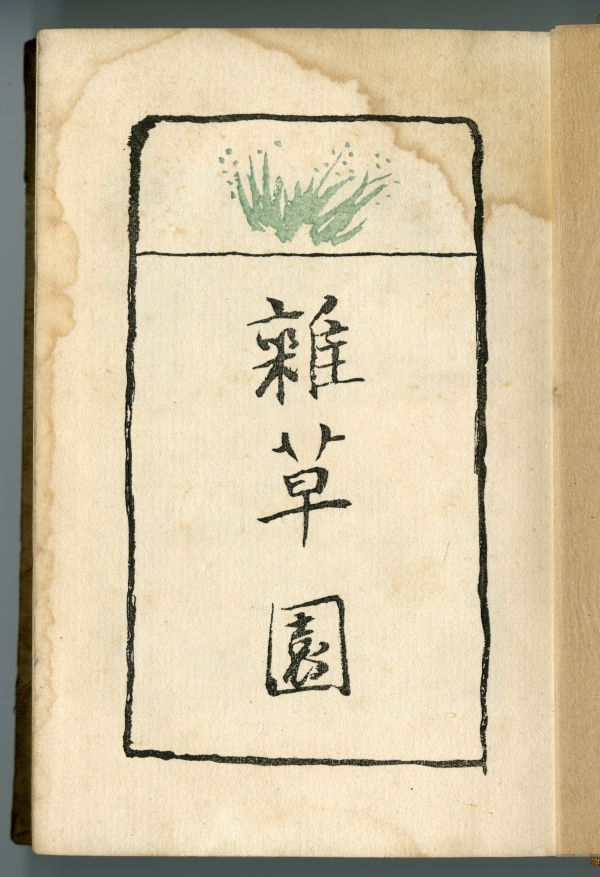 雜草園